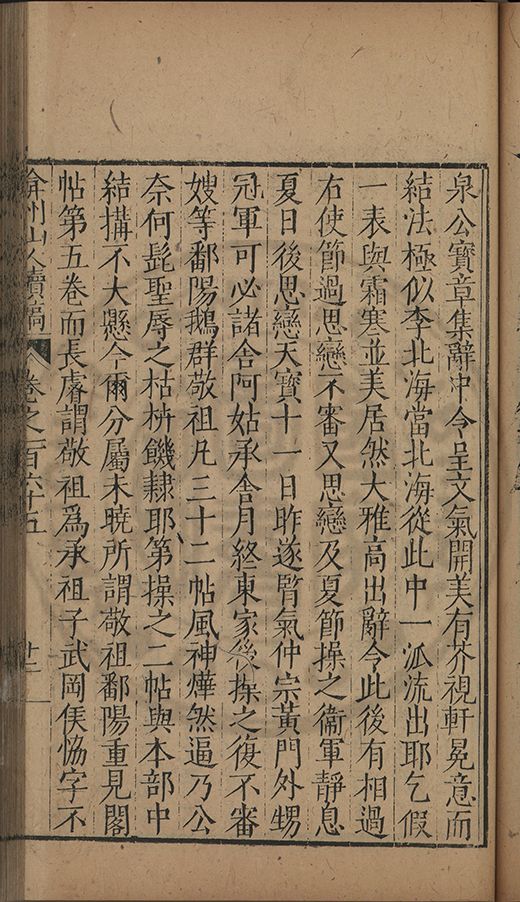 泉公寶章集辭中令呈文氣開美有芥視軒冕意而
結法極似李北海當北海從此中一派流出耶乞假
一表與霜寒並美居然大雅高出辭令此後有相過
右使節過思戀不審又思戀及夏節操之衞軍靜息
夏日後思戀天寶十一日昨遂腎氣仲宗黃門外甥
冠軍可必諸舍阿姑承舍月終東家後操之復不審
嫂等鄱陽鵝群敬祖凡三十二帖風神燁然逼乃公
奈何髡聖辱之枯枿餓隸耶第操之二帖與本部中
結搆不大懸今爾分屬未曉所謂敬祖鄱陽重見閣
帖第五卷而長睿謂敬祖爲承祖子武岡侯恊字不
弇州山人續稿 卷之一百六十五 廿二